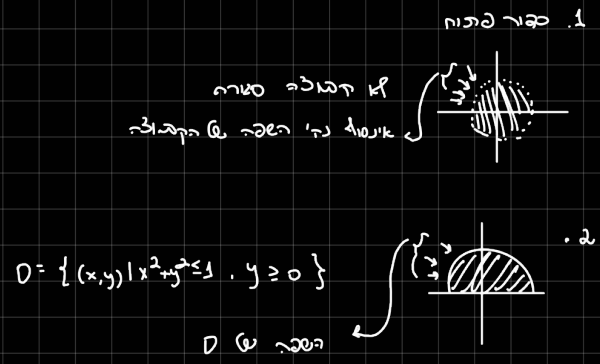 1. כדור פתוח
לא קבוצה סגורה
אינסוף נק' השפה של הקבוצה
2.
D = { (x,y) | x²+y² ≤ 1 , y ≥ 0 }
השפה של D